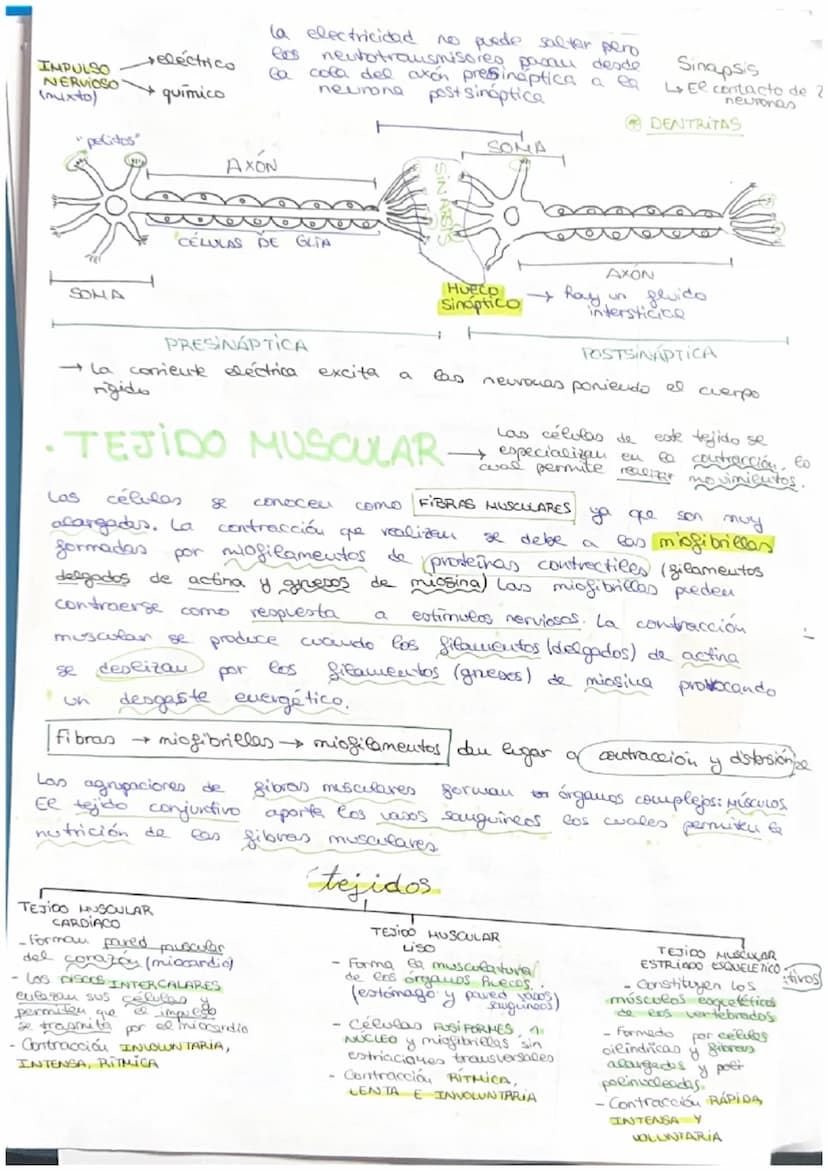 la electricidad no puede saltar pero
los neurotransmisores pasan desde
la cola del axón presináptica a la
neurona postsináptica
IMPULSO
NERVIOSO
(mixto)
→ eléctrico
→ químico
Sinapsis
↳ El contacto de 2
neuronas
* DENTRITAS
"pelitos"
AXÓN
SOMA
SINAPSIS
CÉLULAS DE GLIA
SOMA
HUECO
sináptico
→ hay un fluido
intersticial
AXÓN
PRESINÁPTICA
POSTSINÁPTICA
→ La corriente eléctrica excita a las neuronas poniendo el cuerpo
rígido
· TEJIDO MUSCULAR →
Las células de este tejido se
especializan en la contracción, lo
cual permite realizar movimientos.
Las células se conocen como FIBRAS MUSCULARES ya que son muy
alargadas. La contracción que realizan se debe a las miofibrillas
formadas por miofilamentos de proteínas contráctiles (filamentos
delgados de actina y gruesos de miosina) Las miofibrillas pueden
contraerse como respuesta a estímulos nerviosos. La contracción
muscular se produce cuando los filamentos (delgados) de actina
se deslizan por los filamentos (gruesos) de miosina provocando
un desgaste energético.
Fibras → miofibrillas → miofilamentos dan lugar a contracción y distorsión
Las agrupaciones de fibras musculares forman órganos complejos: MÚSCULOS
El tejido conjuntivo aporta los vasos sanguíneos los cuales permiten la
nutrición de las fibras musculares
tejidos
TEJIDO MUSCULAR
CARDÍACO
- Forman pared muscular
del corazón (miocardio)
- Los DISCOS INTERCALARES
enlazan sus células y
permiten que el impulso
se trasmita por el miocardio
- Contracción INVOLUNTARIA,
INTENSA, RÍTMICA
TEJIDO MUSCULAR
LISO
- Forma la musculatura
de los órganos huecos.
(estómago y pared vasos
sanguíneos)
- Células FUSIFORMES 1
NÚCLEO y miofibrillas sin
estriaciones transversales
- Contracción RÍTMICA,
LENTA E INVOLUNTARIA
TEJIDO MUSCULAR
ESTRIADO ESQUELÉTICO
- Constituyen los
músculos esqueléticos
de los vertebrados
- Formado por células
cilíndricas y fibras
alargadas y poli
polinucleadas.
- Contracción RÁPIDA,
INTENSA Y
VOLUNTARIA